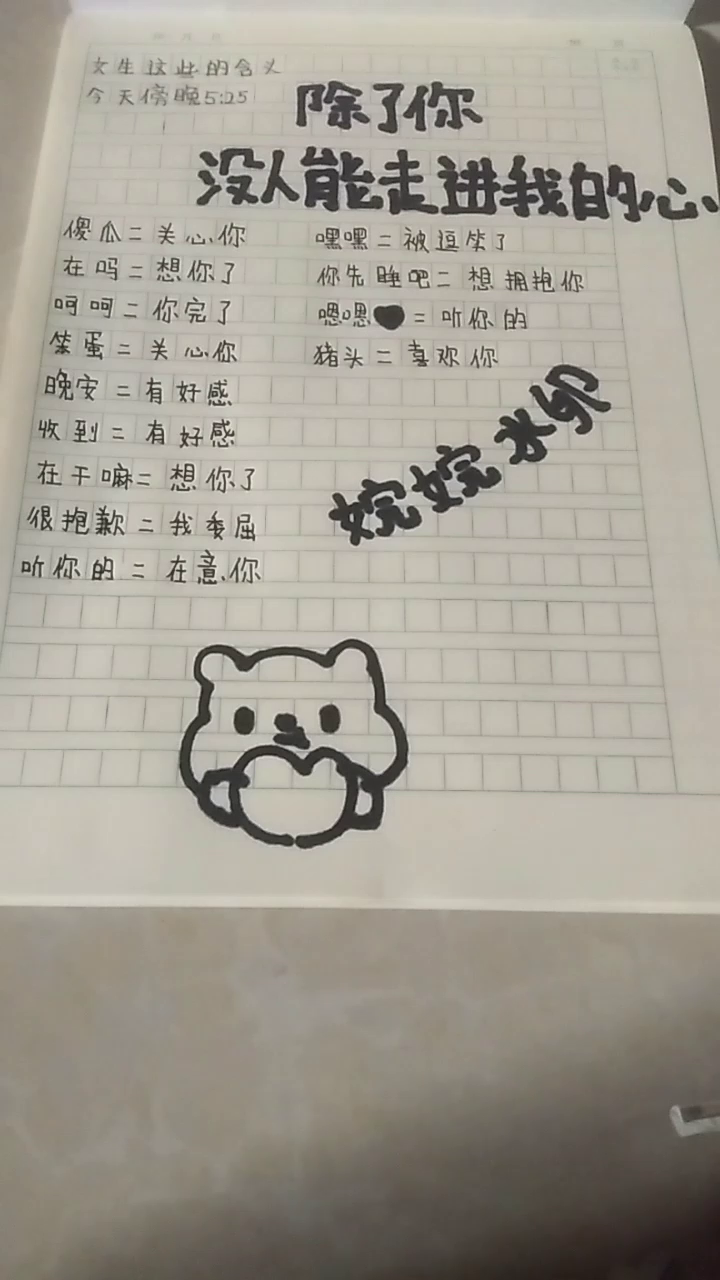 女生这些的含义
今天傍晚5:25
除了你
没人能走进我的心
傻瓜=关心你
嘿嘿=被逗笑了
在吗=想你了
你先睡吧=想拥抱你
呵呵=你完了
嗯嗯=听你的
笨蛋=关心你
猪头=喜欢你
晚安=有好感
收到=有好感
在干嘛=想你了
很抱歉=我委屈
听你的=在意你
婉婉水印